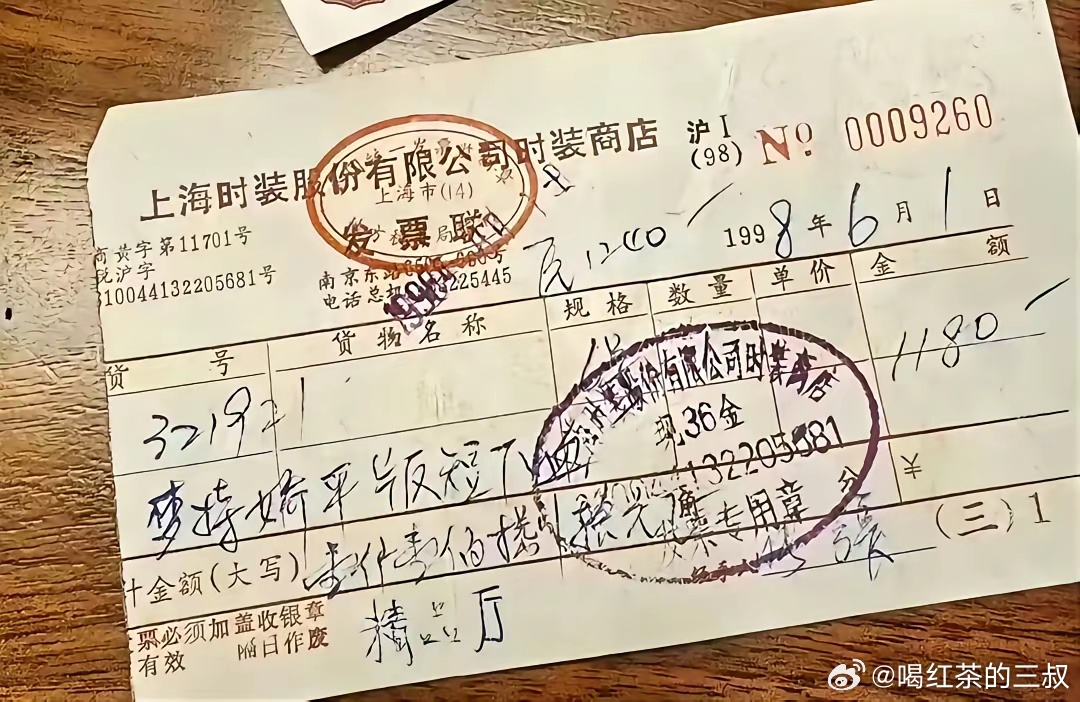 上海时装股份有限公司时装商店
沪I
(98)
No 0009260
上海市(14)
发票联
商黄字第11701号
税沪字
310044132205681号
南京东路
电话总机 3225445
1998年6月1日
货号 货物名称 规格 数量 单价 金额
32192 1180
梦特娇平版短T恤
股份有限公司时装商店
现36金
132205681
发票专用章
分 ¥
计金额(大写) 壹仟壹佰捌拾元
(三)1
发票必须加盖收银章
有效 隔日作废
精品厅
@喝红茶的三叔